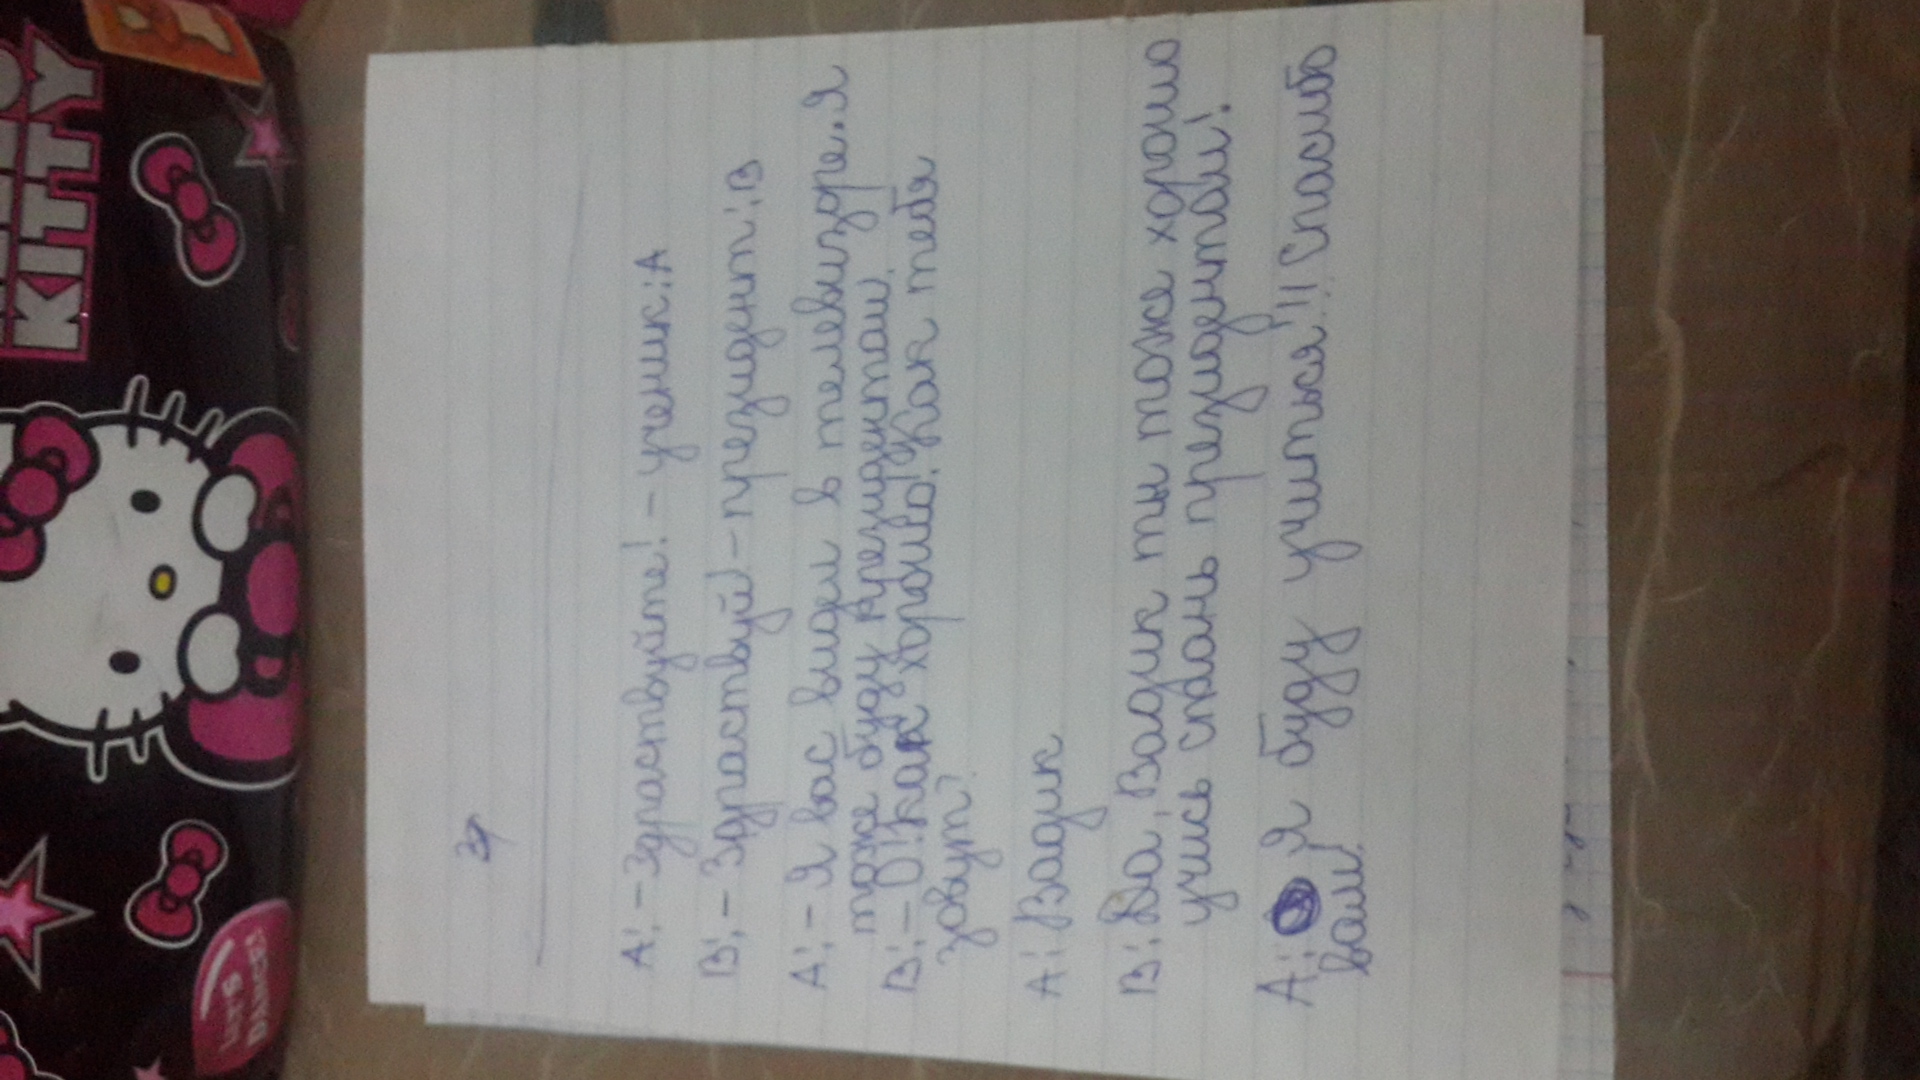 зу
А:-Здраствуйте! - ученик:А
В:-Здраствуй! - президент:В
А:-Я вас видел в телевизоре. Я
тоже буду президентом.
В:-О! как хорошо! Как тебя
зовут?
А: Вадик
В: Да, Вадик ты тоже хорошо
учись стань президентом!
А: Я буду учиться!!! Спасибо
вам!
KITTY
Let's
DANCE!